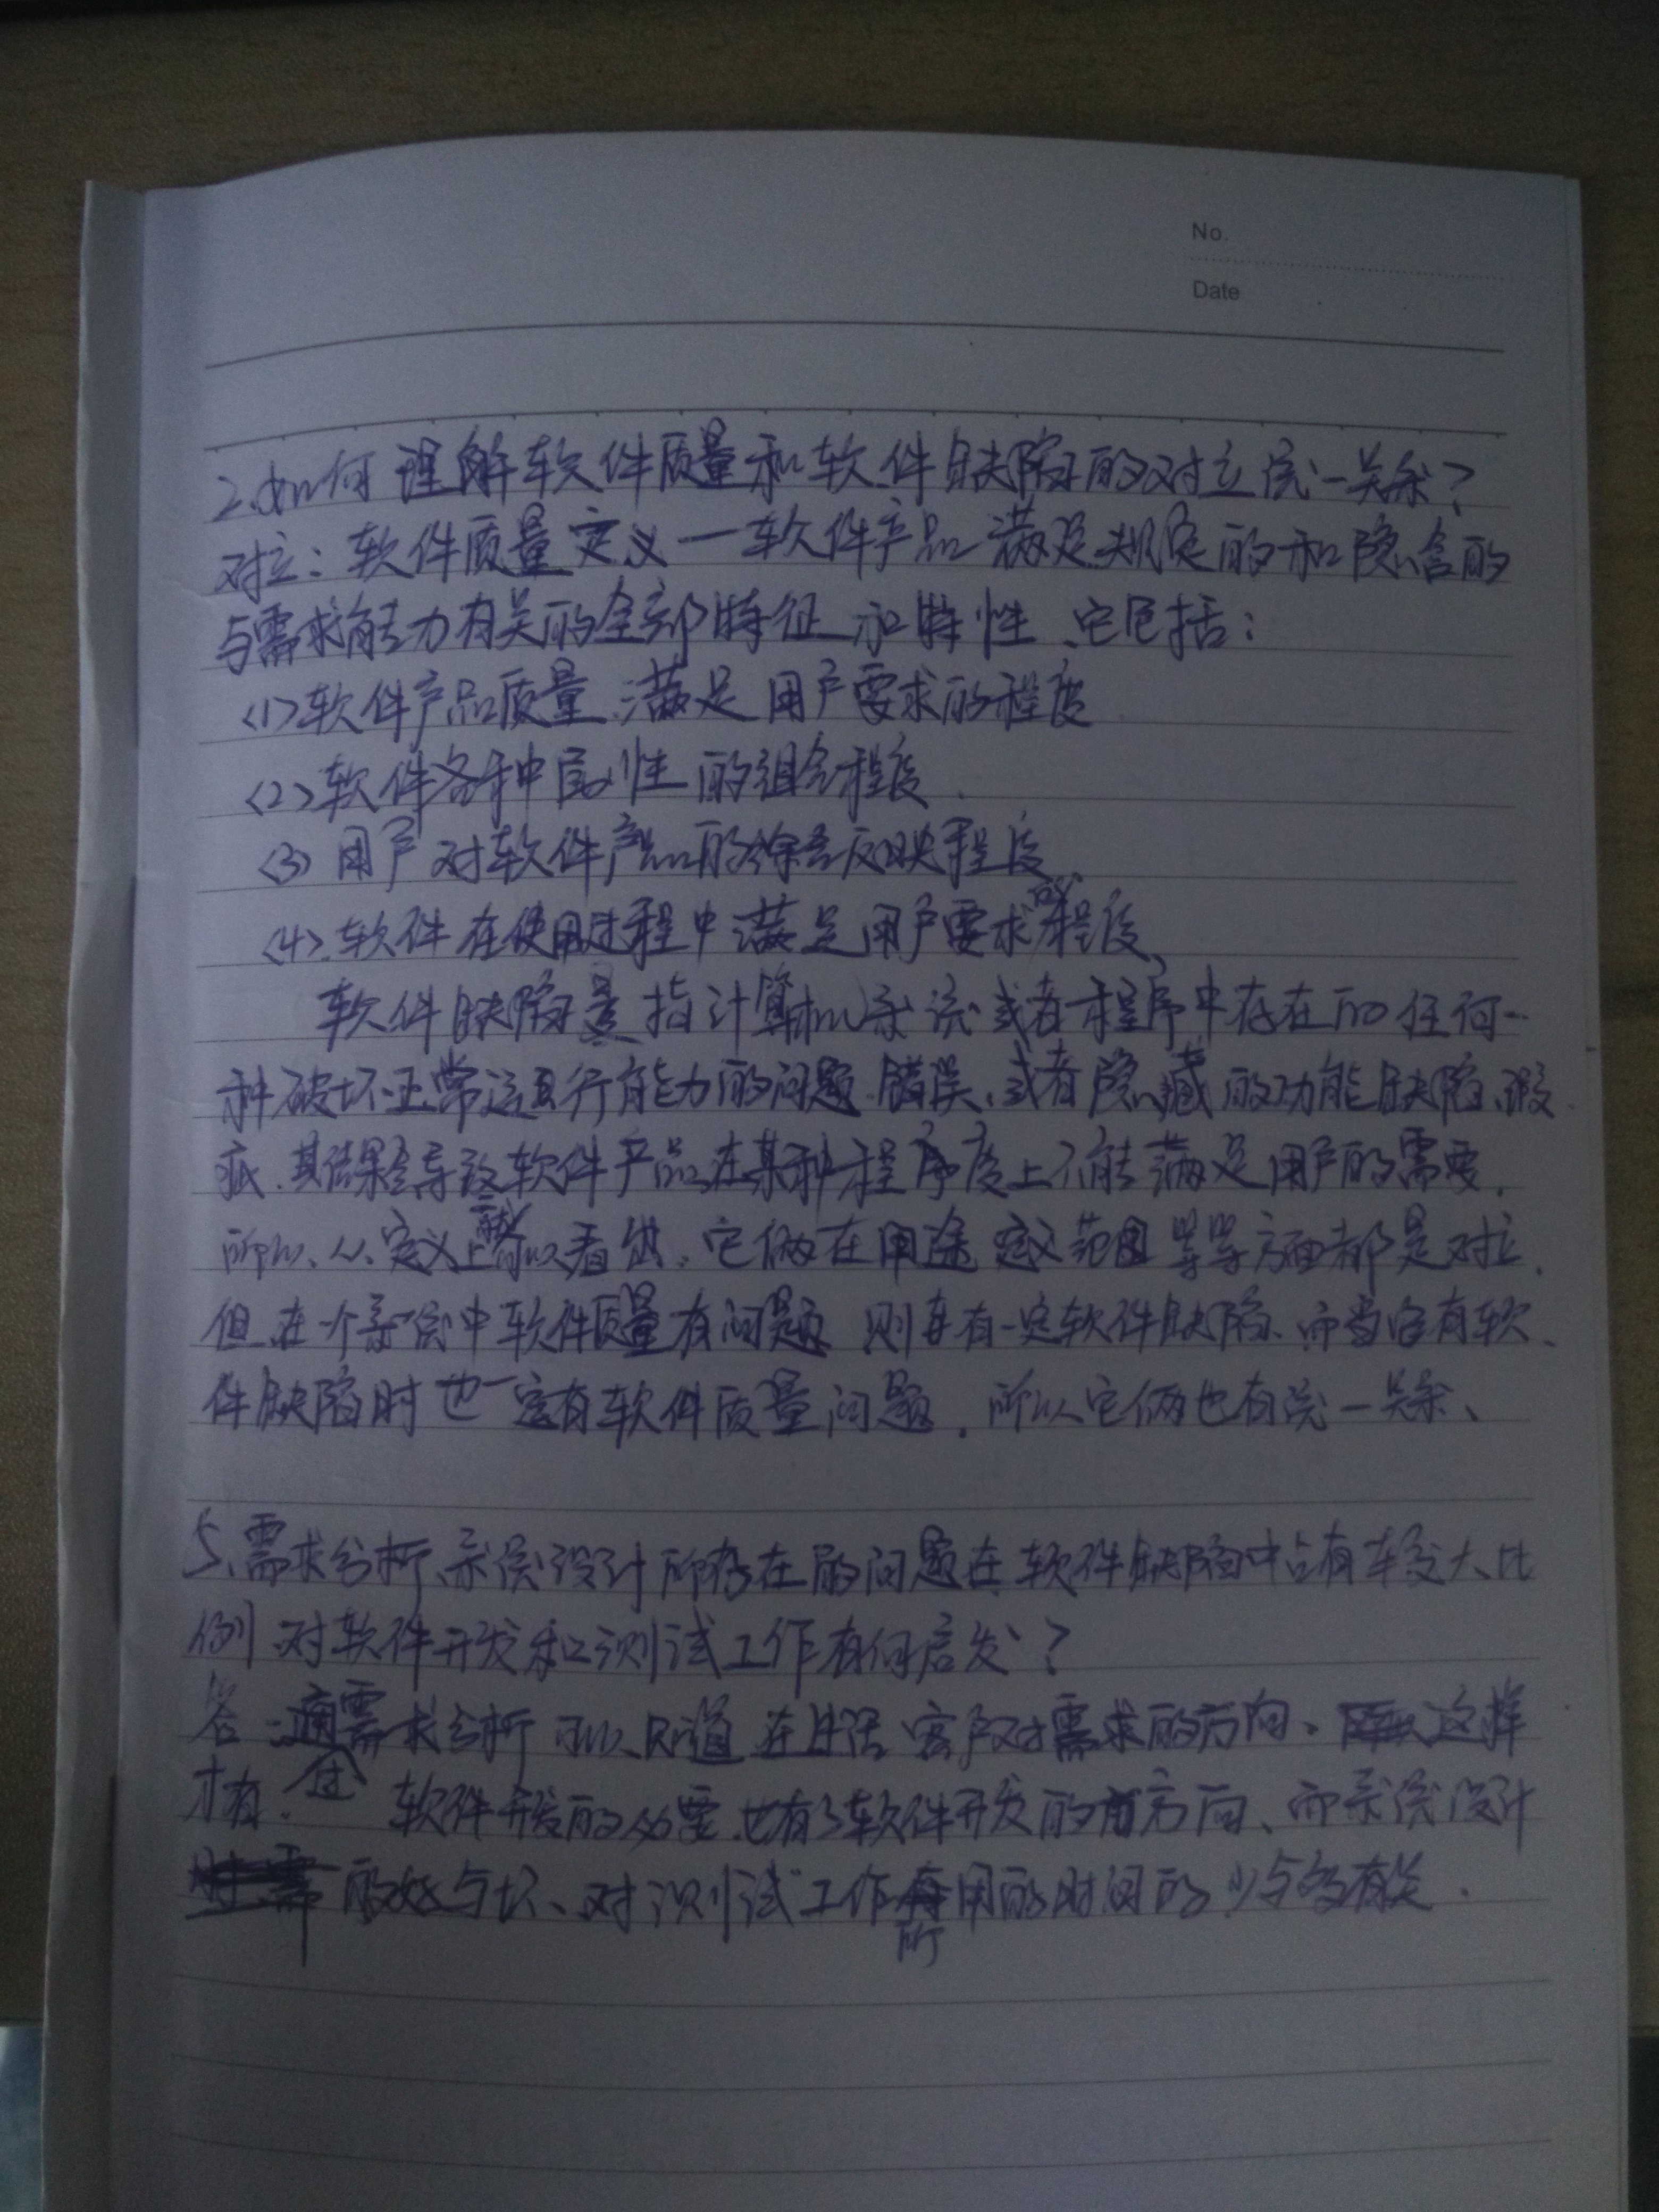 No.
Date
2.如何理解软件质量和软件缺陷的对立统一关系?
对立:软件质量定义一软件产品满足规定的和隐含的
与需求能力有关的全部特征和特性、它包括:
<1>软件产品质量满足用户要求的程度
<2>软件各种属性的组合程度.
<3>用户对软件产品的综合反映程度、
<4>.软件在使用过程中满足用户要求的程度、
软件缺陷是指计算机系统或者程序中存在的任何一
种破坏正常运行能力的问题.错误、或者隐藏的功能缺陷、瑕
疵.其结果会导致软件产品在某种程度上不能满足用户的需要.
所以、从定义上就可以看出.它俩在用途定义范围等等方面都是对立.
但在一个系统中软件质量有问题 则有一定软件缺陷、而当它有软
件缺陷时也一定有软件质量问题.所以它俩也有统一关系、
5、需求分析、系统设计所存在的问题在软件缺陷中占有较大比
例 对软件开发和测试工作有何启发?
答:需求分析可以知道在生活客户对需求的方向、这样
才有 软件开发的必要.也有了软件开发的方向、而系统设计
的好与坏、对测试工作所用的时间的少与多有关.